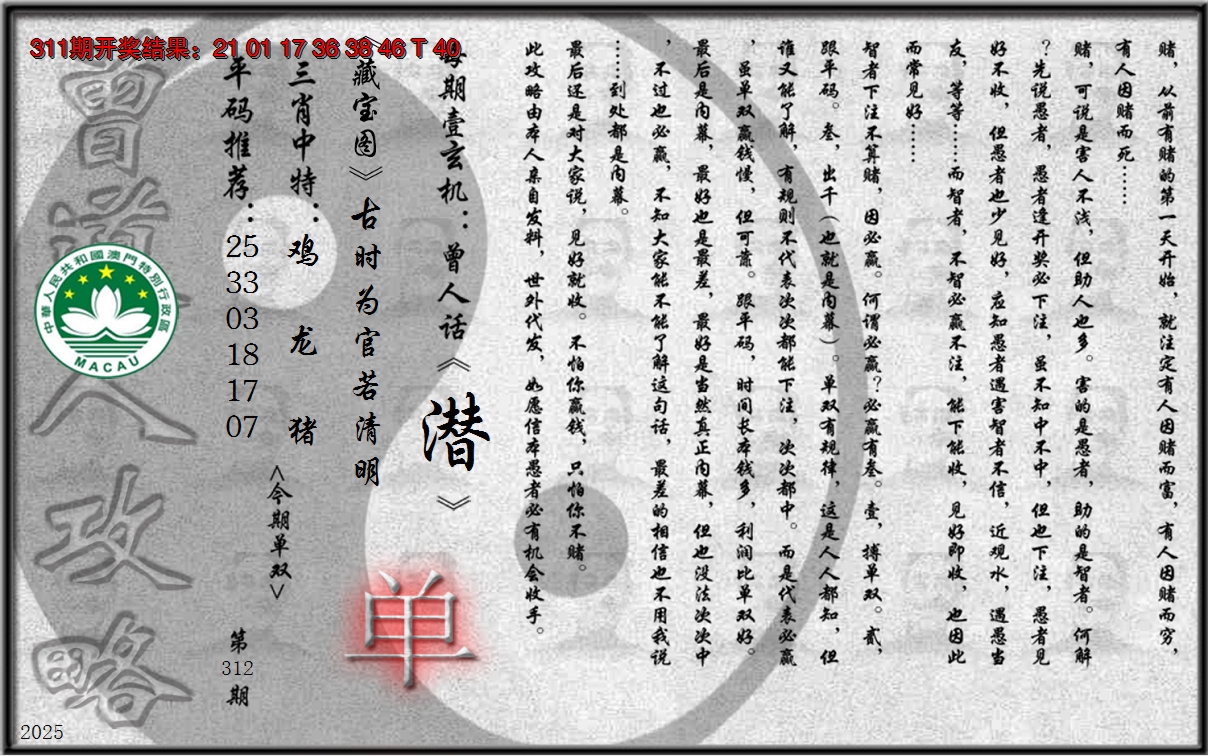 311期开奖结果：21 01 17 36 38 46 T 40
赌，从前有赌的第一天开始，就注定有人因赌而富，有人因赌而穷，
有人因赌而死……
赌，可说是害人不浅，但助人也多。害的是愚者，助的是智者。何解
？先说愚者，愚者逢开奖必下注，虽不知中不中，但也下注，愚者见
好不收，但愚者也少见好，应知愚者遇害智者不信，近观水，遇愚当
友，等等……而智者，不智必赢不注，能下能收，见好即收，也因此
而常见好……
智者下注不算赌，因必赢。何谓必赢？必赢有叁。壹，搏单双。贰，
跟平码。叁，出千（也就是内幕）。单双有规律，这是人人都知，但
谁又能了解，有规则不代表次次都能下注，次次都中。而是代表必赢
，虽单双赢钱慢，但可靠。跟平码，时间长本钱多，利润比单双好。
最后是内幕，最好也是最差，最好是当然真正内幕，但也没法次次中
，不过也必赢，不知大家能不能了解这句话，最差的相信也不用我说
……到处都是内幕。
最后还是对大家说，见好就收。不怕你赢钱，只怕你不赌。
此攻略由本人亲自发料，世外代发，如愿信本愚者必有机会收手。
每期壹玄机：曾人话《潜》
《藏宝图》古时为官若清明
单
三肖中特：鸡 龙 猪
<今期单双>
平码推荐：25 33 03 18 17 07
第312期
曾道人攻略
中華人民共和國澳門特別行政區
MACAU
2025